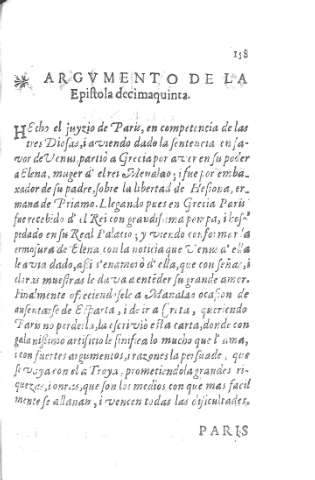 138
ARGVMENTO DE LA
Epistola decimaquinta.
HEcho el juyzio de Paris, en competencia de las
tres Diosas, i aviendo dado la sentencia en fa-
vor de Venus, partiò a Grecia por aver en su poder
a Elena, muger d'el rei Menalao; i fue por emba-
xador de su padre, sobre la libertad de Hesiona, er-
mana de Priamo. Llegando pues en Grecia Paris
fue recebido d'el Rei con grandissima pompa, i hos-
pedado en su Real Palacio; y viendo conforme la
ermosura de Elena con la noticia que Venus d'ella
le avia dado, assi s'enamorò d'ella, que con señas, i
claras muestras le dava a entēder su grande amor.
Finalmente ofreciendosele a Manalao ocasion de
ausentarse de Esparta, i de ir a Creta, queriendo
Paris no perderla, la escriviò esta carta, donde con
galanissimo artificio le sinifica lo mucho que l'ama,
i con fuertes argumentos, i razones la persuade, que
se vaya con el a Troya, prometiendola grandes ri-
quezas, i onras, que son los medios con que mas facil
mente se allanan, i vencen todas las dificultades.
PARIS